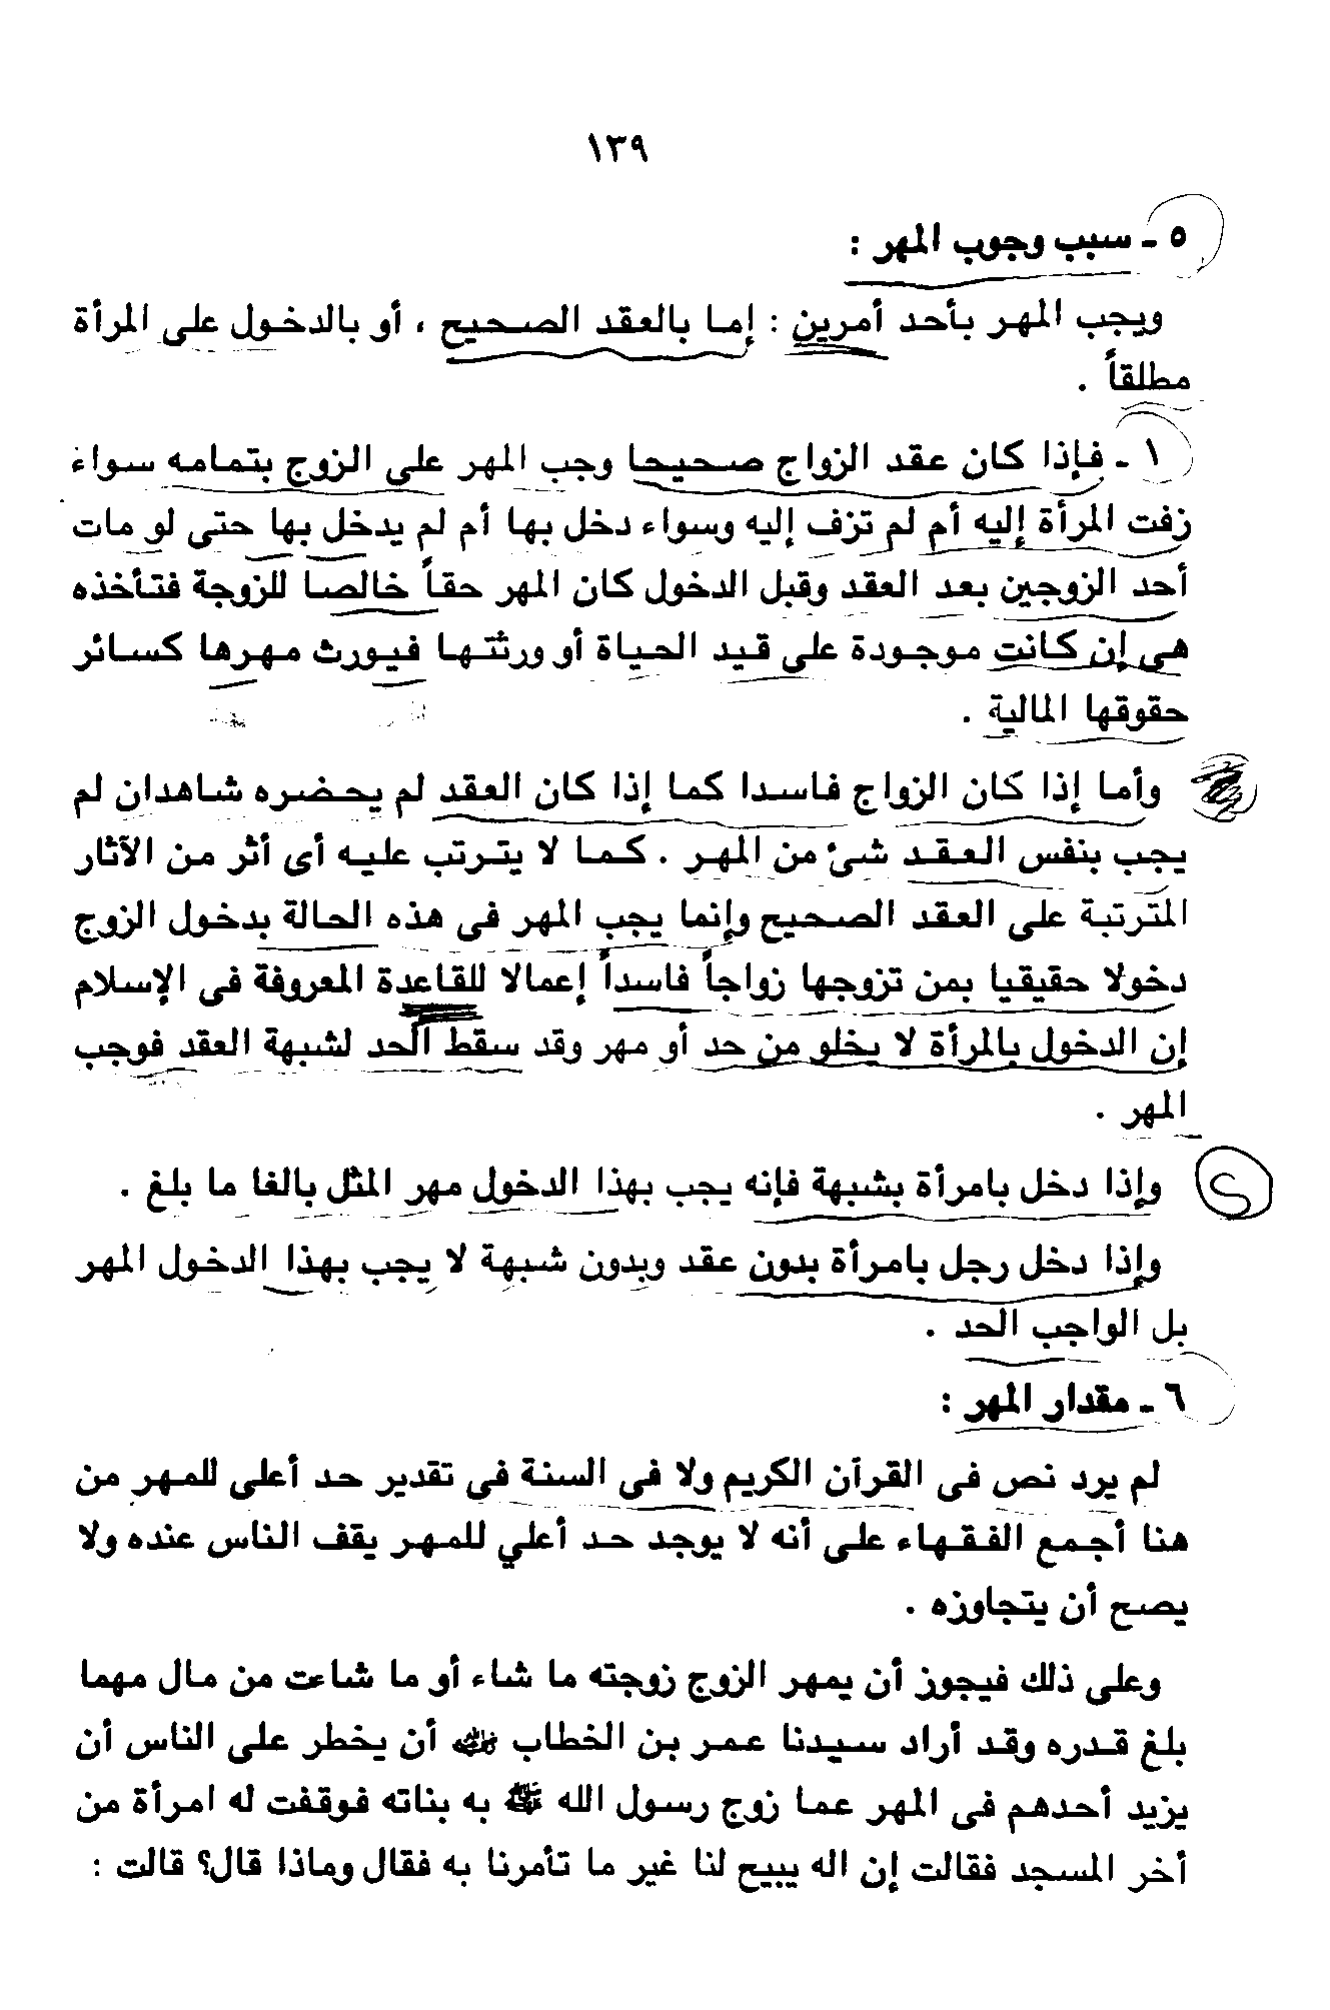 ١٣٩
٥ ـ سبب وجوب المهر :
ويجب المهر بأحد أمرين : إما بالعقد الصحيح ، أو بالدخول على المرأة
مطلقاً .
١ ـ فإذا كان عقد الزواج صحيحا وجب المهر على الزوج بتمامه سواء
زفت المرأة إليه أم لم تزف إليه وسواء دخل بها أم لم يدخل بها حتى لو مات
أحد الزوجين بعد العقد وقبل الدخول كان المهر حقاً خالصا للزوجة فتأخذه
هى إن كانت موجودة على قيد الحياة أو ورثتها فيورث مهرها كسائر
حقوقها المالية .
وأما إذا كان الزواج فاسدا كما إذا كان العقد لم يحضره شاهدان لم
يجب بنفس العقد شئ من المهر . كما لا يترتب عليه أى أثر من الآثار
المترتبة على العقد الصحيح وإنما يجب المهر فى هذه الحالة بدخول الزوج
دخولا حقيقيا بمن تزوجها زواجاً فاسداً إعمالا للقاعدة المعروفة فى الإسلام
إن الدخول بالمرأة لا يخلو من حد أو مهر وقد سقط الحد لشبهة العقد فوجب
المهر .
وإذا دخل بامرأة بشبهة فإنه يجب بهذا الدخول مهر المثل بالغا ما بلغ .
وإذا دخل رجل بامرأة بدون عقد وبدون شبهة لا يجب بهذا الدخول المهر
بل الواجب الحد .
٦ ـ مقدار المهر :
لم يرد نص فى القرآن الكريم ولا فى السنة فى تقدير حد أعلى للمهر من
هنا أجمع الفقهاء على أنه لا يوجد حد أعلي للمهر يقف الناس عنده ولا
يصح أن يتجاوزه .
وعلى ذلك فيجوز أن يمهر الزوج زوجته ما شاء أو ما شاءت من مال مهما
بلغ قدره وقد أراد سيدنا عمر بن الخطاب رضي الله عنه أن يخطر على الناس أن
يزيد أحدهم فى المهر عما زوج رسول الله ﷺ به بناته فوقفت له امرأة من
أخر المسجد فقالت إن اله يبيح لنا غير ما تأمرنا به فقال وماذا قال؟ قالت :